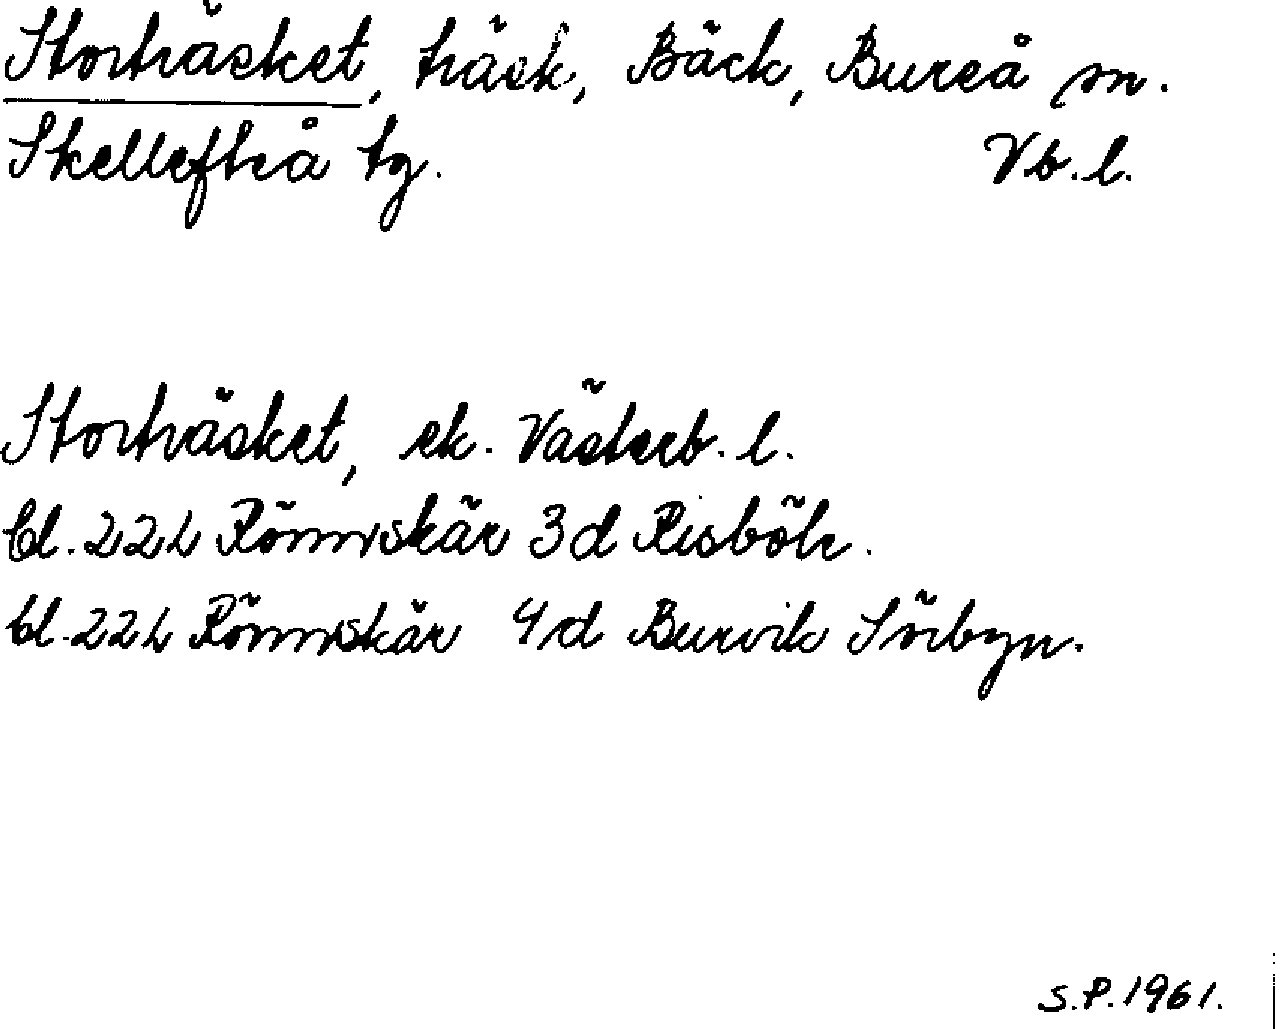 Storträsket, träsk, Bäck, Bureå sn.
Skellefteå tg. Vb.l.
Storträsket, ek. Västerb.l.
bl. 22L Rönnskär 3d Risböle.
bl. 22L Rönnskär 4d Burvik Sörbyn.
S.P. 1961.